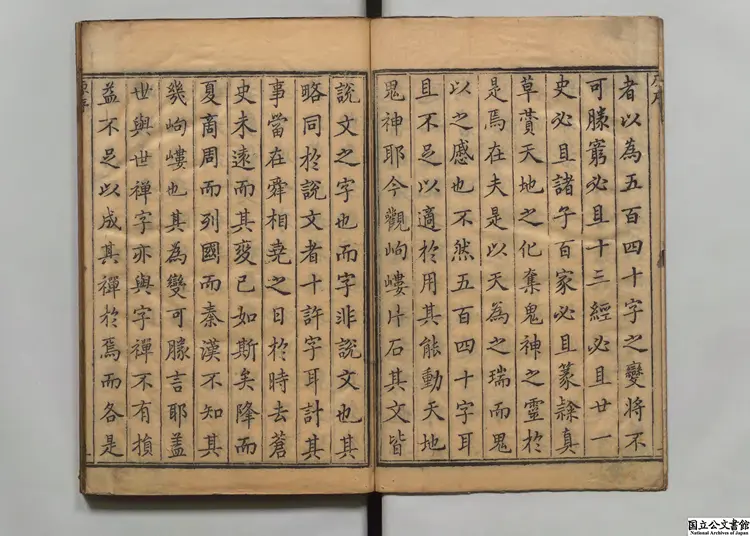 者以為五百四十字之變將不
可勝窮必且十三經必且廿一
史必且諸子百家必且篆隸真
草賛天地之化奪鬼神之靈於
是焉在夫是以天為之瑞而鬼
以之感也不然五百四十字耳
且不足以適於用其能動天地
鬼神耶今觀岣嶁片石其文皆
說文之字也而字非說文也其
略同於說文者十許字耳計其
事當在舜相堯之日於時去蒼
史未遠而其變已如斯矣降而
夏商周而列國而秦漢不知其
幾岣嶁也其為變可勝言耶盖
世與世禪字亦與字禪不有損
益不足以成其禪於焉而各是
国立公文書館
National Archives of Japan